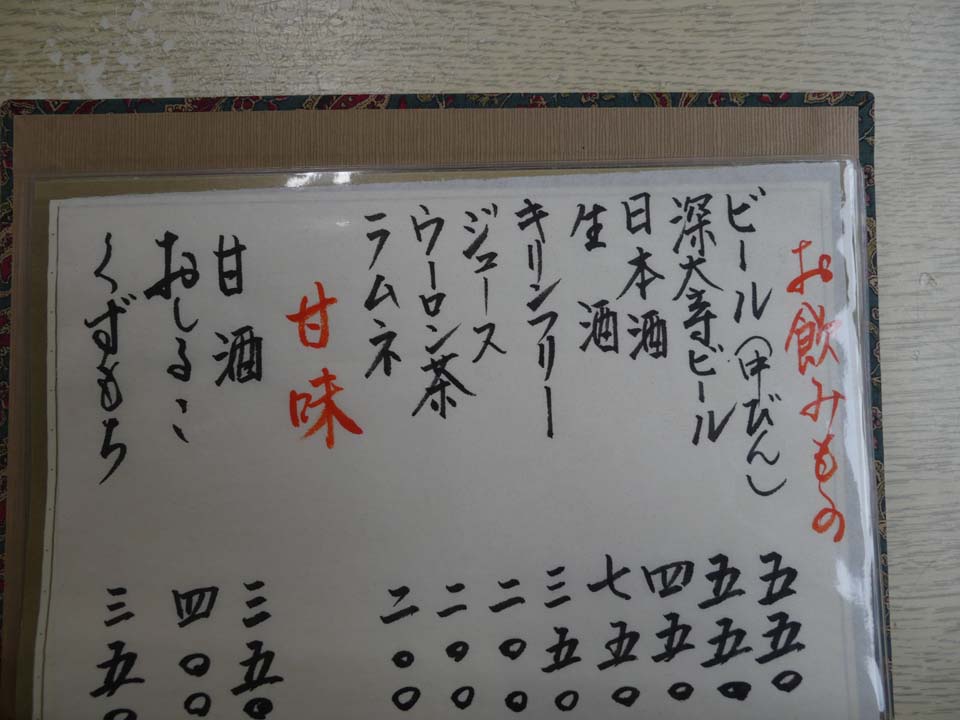 お飲みもの
ビール(中びん) 五五〇
深大寺ビール 五五〇
日本酒 四五〇
生酒 七五〇
キリンフリー 三五〇
ジュース 二〇〇
ウーロン茶 二〇〇
ラムネ 二〇〇
甘味
甘酒 三五〇
おしるこ 四〇〇
くずもち 三五〇